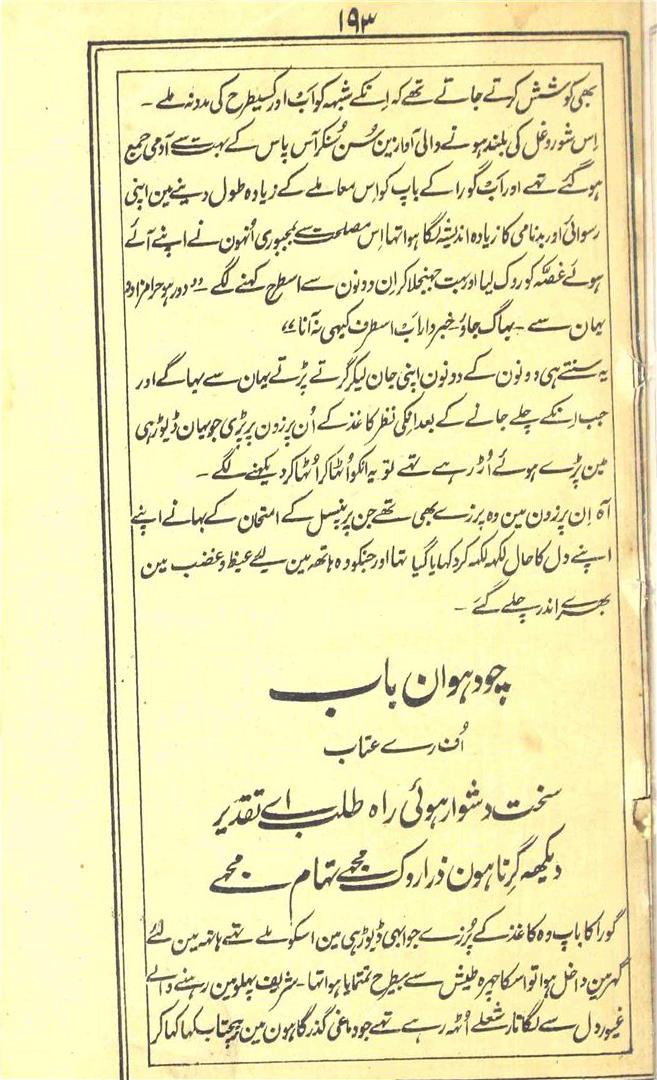 ۱۹۳
بھی کوشش کرتے جاتے تھے کہ انکے شبہہ کو اَبْ اور کسیطرح کی مدد نہ ملے ۔
اِس شور و غل کی بلند ہونے والی آوازین سُن سُنکر آس پاس کے بہت سے آدمی جمع
ہو گئے تھے اور اَبْ گورا کے باپ کو اِس معاملے کے زیادہ طول دینے مین اپنی
رسوائی اور بدنامی کا زیادہ اندیشہ لگا ہوا تھا اِس مصلحت سے بمجبوری اُنھون نے اپنے آئے
ہوئے غصّہ کو روک لیا اور بہت جھنجھلا کر اِن دونون سے اسطرح کہنے لگے ۔ “ دور ہو حرامزادو
یہان سے ۔ بھاگ جاؤ ۔ خبردار اَبْ اسطرف کبھی نہ آنا ”
یہ سنتے ہی دونون کے دونون اپنی جان لیکر گرتے پڑتے یہان سے بھاگے اور
جب اِنکے چلے جانے کے بعد انکی نظر کاغذ کے اُن پرزون پر پڑی جو یہان ڈیوڑہی
مین پڑے ہوئے اُڑ رہے تھے تو یہ انکو اُٹھا کر اُٹھا کر دیکھنے لگے ۔
آہ اِن پرزون مین وہ پرزے بھی تھے جن پر پنسل کے امتحان کے بہانے اپنے
اپنے دل کا حال لکھہ لکھہ کر دکھایا گیا تھا اور جنکو وہ ہاتھہ مین لئے غیظ و غضب مین
بھرے اندر چلے گئے ۔
چودہوان باب
اُف رے عتاب
سخت دشوار ہوئی راہ طلب اے تقدیر
دیکھہ گرتا ہون ذرا روک مجھے تھام مجھے
گورا کا باپ وہ کاغذ کے پُرزے جو ابھی ڈیوڑہی مین اسکو ملے تھے ہاتھہ مین لئے
گھر مین داخل ہوا تو اسکا چہرہ طیش سے بیطرح تمتمایا ہوا تھا ۔ شریف پہلو مین رہنے والے
غیور دل سے لگاتار شعلے اُٹھہ رہے تھے جو دماغی گذرگاہون مین پیچتاب کھا کھا کر